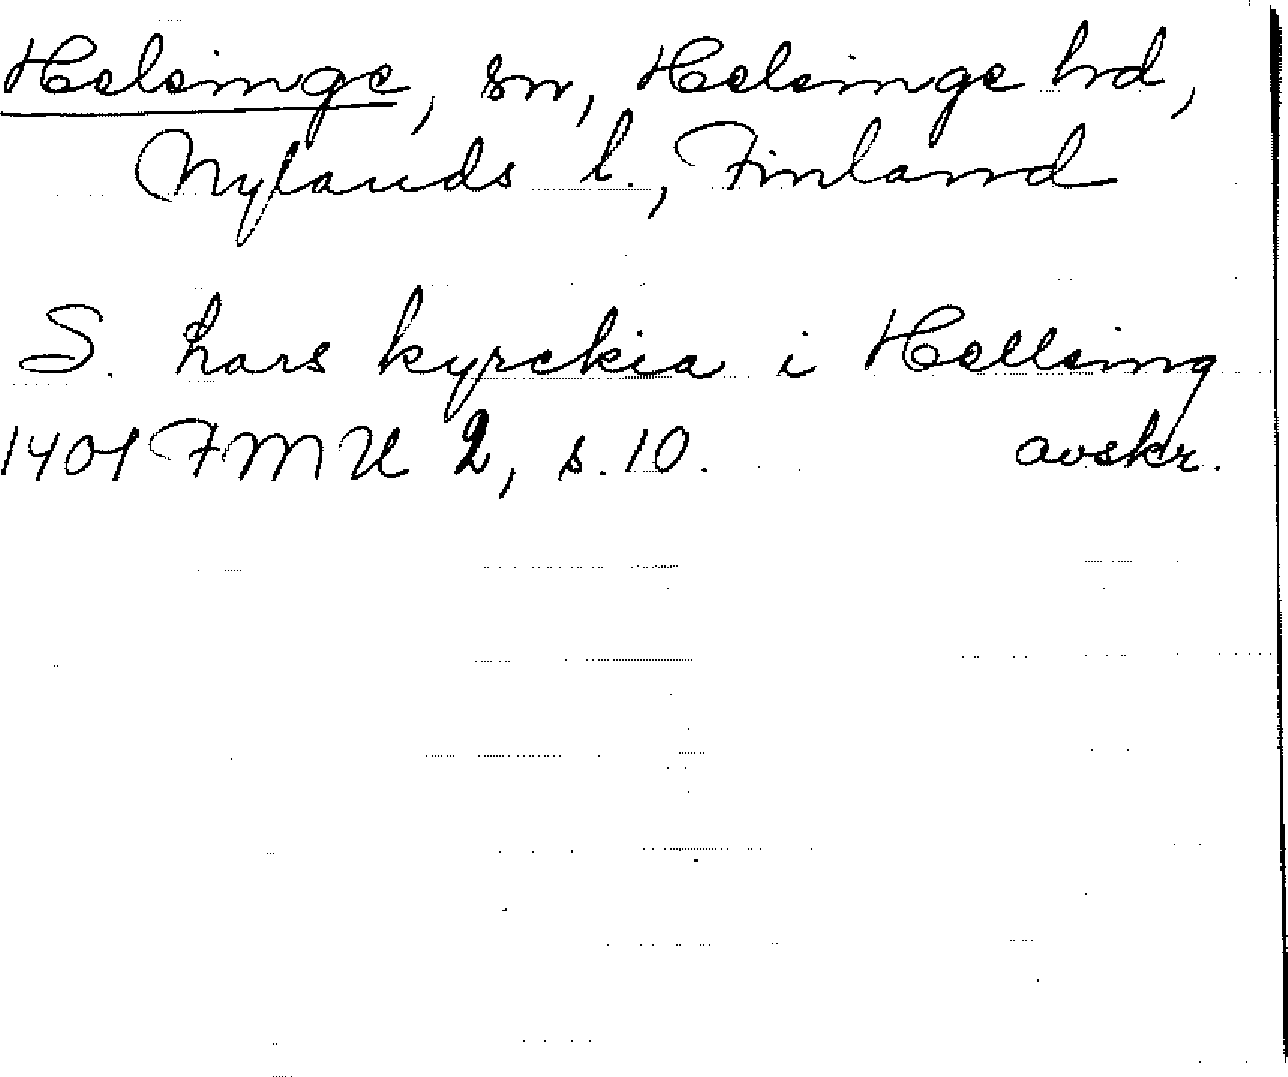 Helsinge, sn, Helsinge hd,
Nylands l., Finland
S. Lars kyrckia i Hellsing
1401 FMU 2, s. 10. avskr.